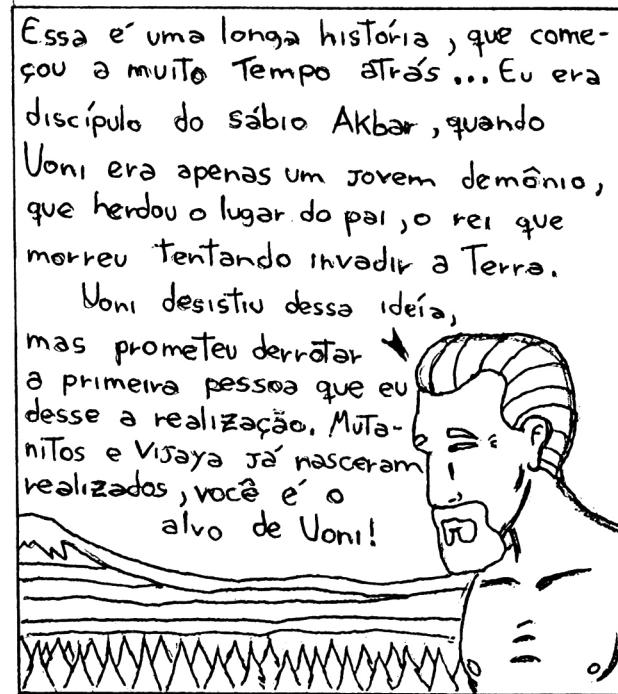 Essa é uma longa história, que come-
çou a muito Tempo atrás... Eu era
discípulo do sábio Akbar, quando
Uoni era apenas um jovem demônio,
que herdou o lugar do pai, o rei que
morreu tentando invadir a Terra.
Uoni desistiu dessa idéia,
mas prometeu derrotar
a primeira pessoa que eu
desse a realização. Muta-
nitos e Vijaya já nasceram
realizados, você é o
alvo de Uoni!